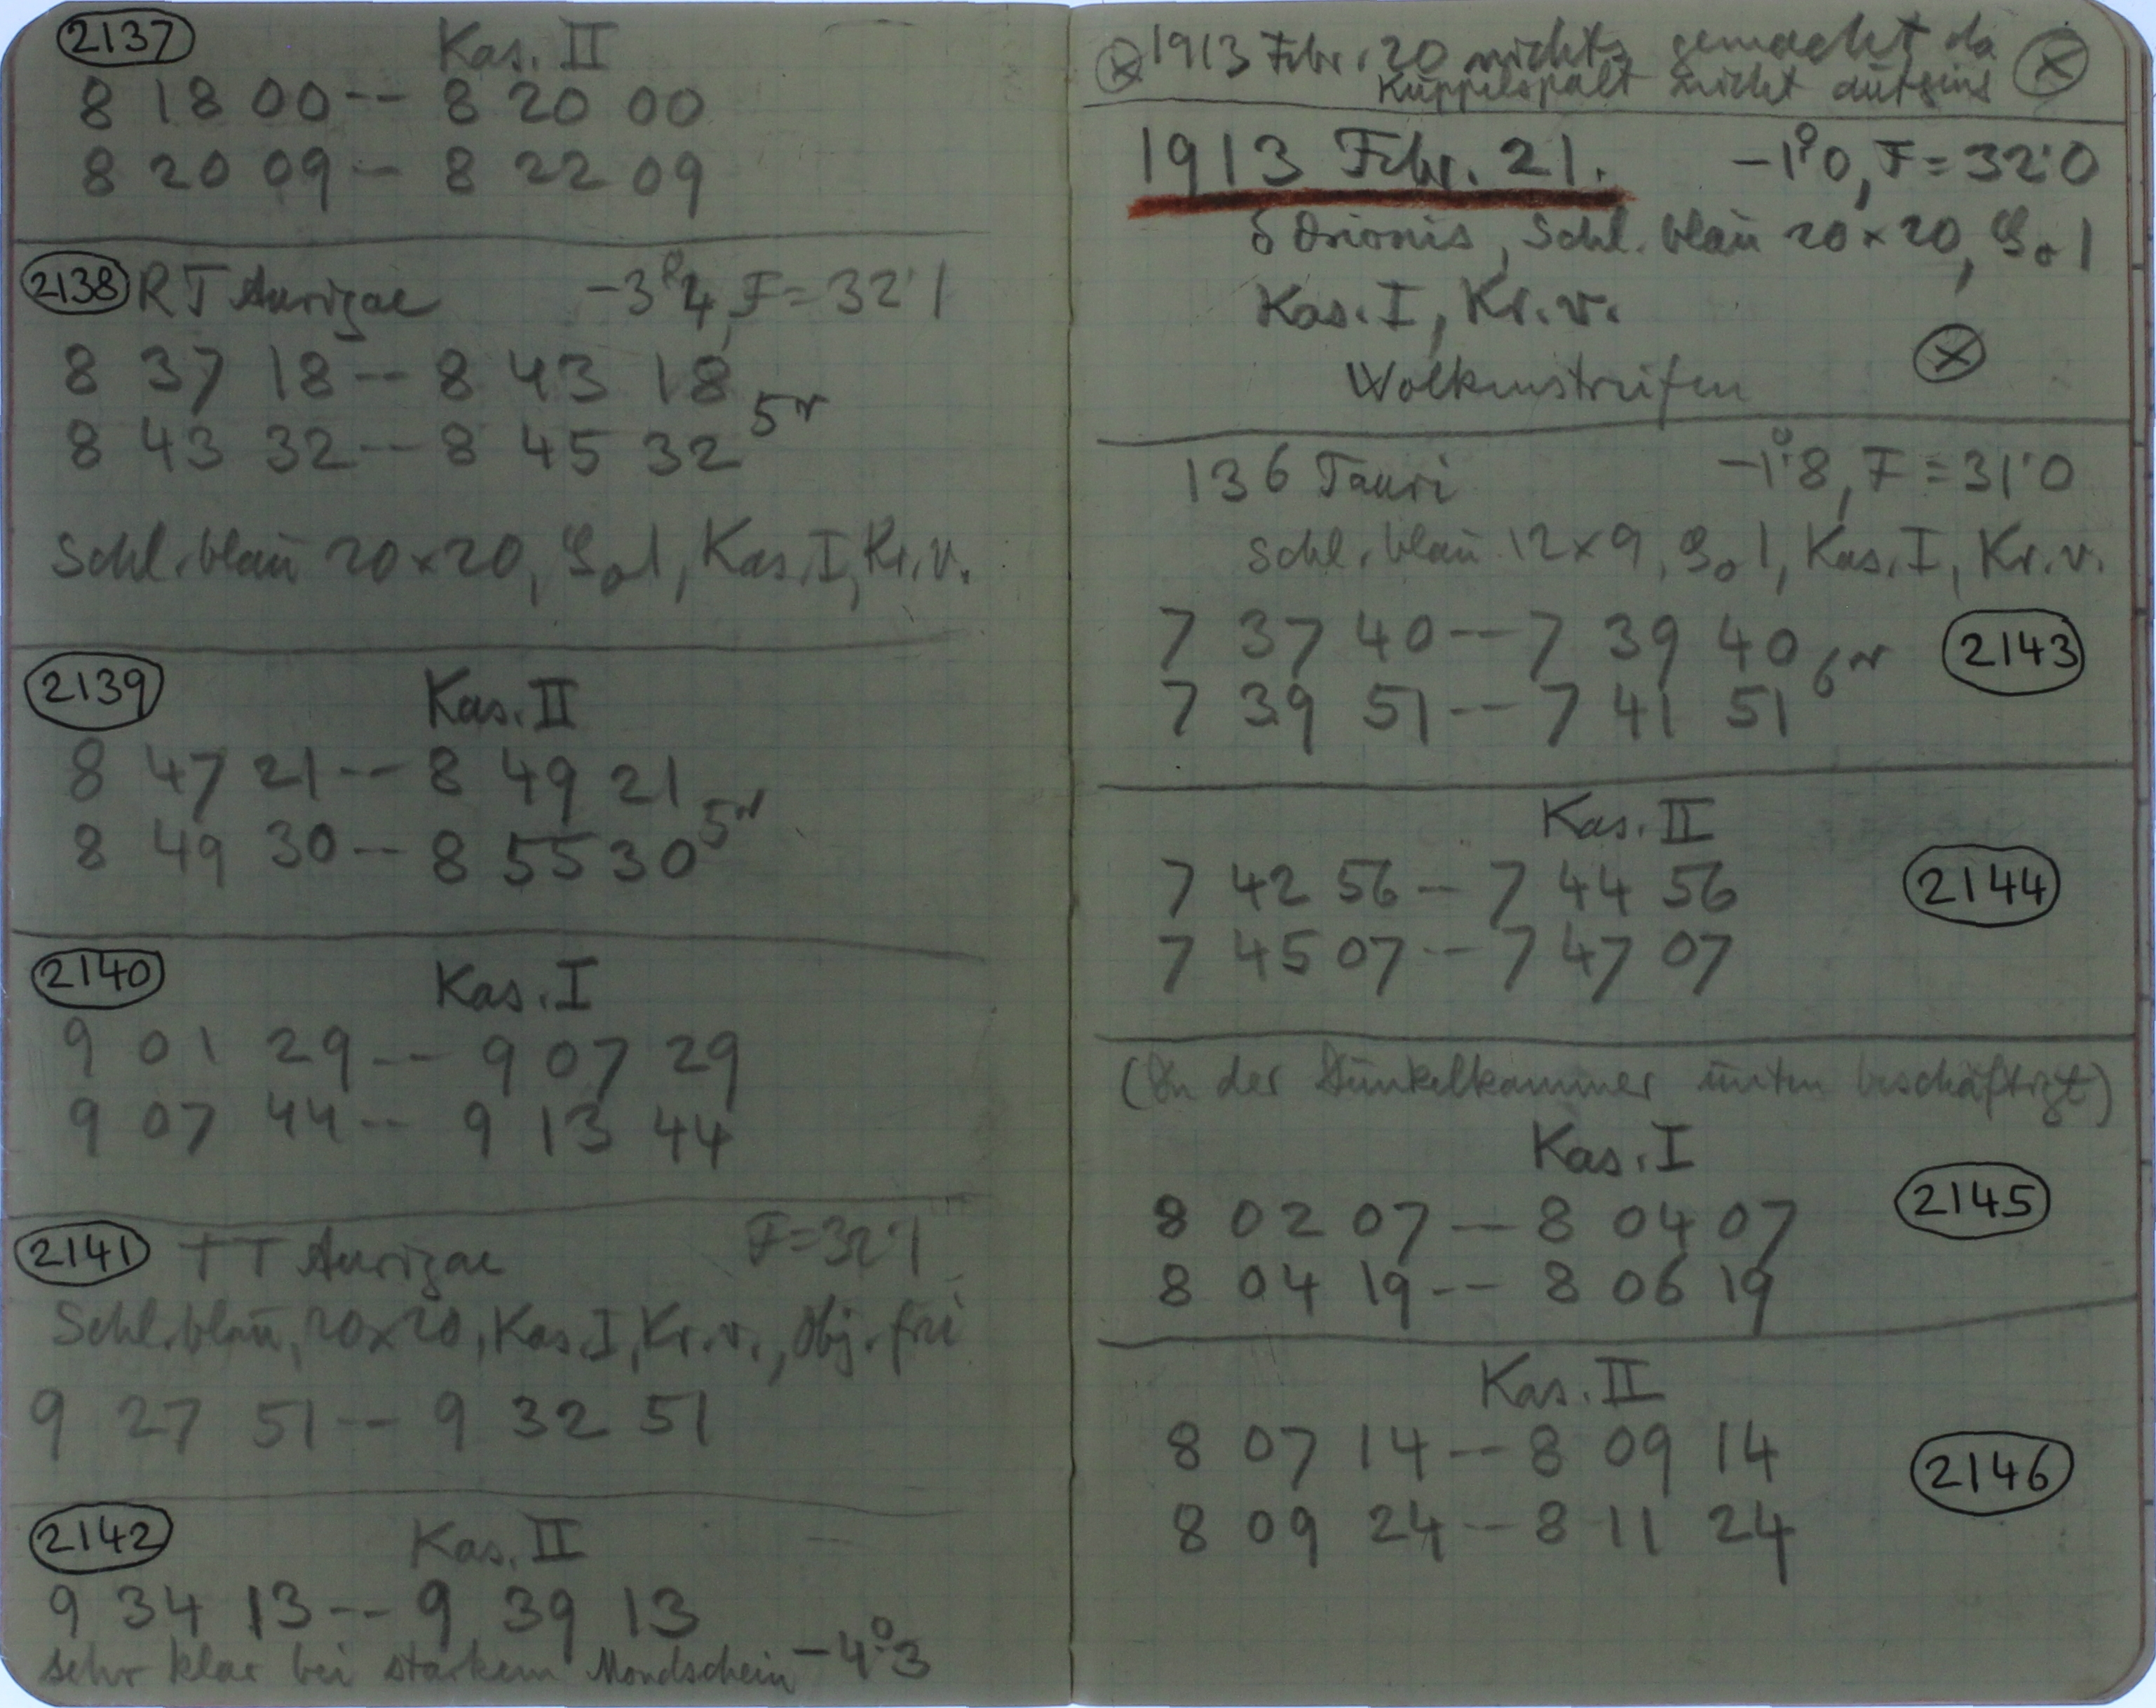 2137 Kas. II
8 18 00 -- 8 20 00
8 20 09 -- 8 22 09
2138 RT Aurigae -3°4, F=32'1
8 37 18 -- 8 43 18
5m
8 43 32 -- 8 45 32
Schl. blau 20×20, 1, Kas. I, Kr. v.
2139 Kas. II
8 47 21 -- 8 49 21
5m
8 49 30 -- 8 55 30
2140 Kas. I
9 01 29 -- 9 07 29
9 07 44 -- 9 13 44
2141 TT Aurigae F=32'1
Schl. blau, 20×20, Kas. I, Kr. v., Obj. frei
9 27 51 -- 9 32 51
2142 Kas. II
9 34 13 -- 9 39 13
sehr klar bei starkem Mondschein -4°3
1913 Febr. 20 nichts gemacht da
Kuppelspalt nicht aufging
1913 Febr. 21. -1°0, F=32'0
δ Orionis, Schl. blau 20×20, 1
Kas. I, Kr. v.
Wolkenstreifen
136 Tauri -1°8, F=31'0
Schl. blau 12×9, 1, Kas. I, Kr. v.
7 37 40 -- 7 39 40 2143
6m
7 39 51 -- 7 41 51
Kas. II
7 42 56 -- 7 44 56 2144
7 45 07 -- 7 47 07
(In der Dunkelkammer unten beschäftigt)
Kas. I
8 02 07 -- 8 04 07 2145
8 04 19 -- 8 06 19
Kas. II
8 07 14 -- 8 09 14 2146
8 09 24 -- 8 11 24